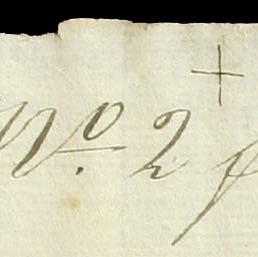 +
Nº 2